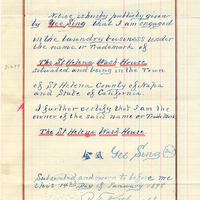 Notice is hereby publicly given
by Yee Sing that I am engaged
in the laundry business under
the name, or Trademark of
The St Helena Wash House
situated and being in the Town
of St Helena County of Napa
and State of California.
I further certify that I am the
owner of the said name or Trade Mark
The St Helena Wash House
Yee Sing
Subscribed and sworn to before me
this 14th Day of January 1898